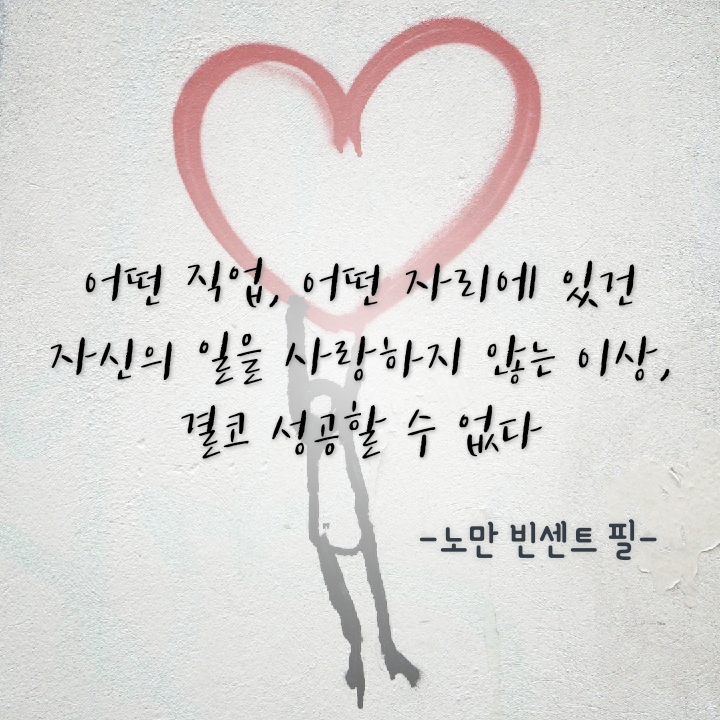 어떤 직업, 어떤 자리에 있건
자신의 일을 사랑하지 않는 이상,
결코 성공할 수 없다
-노만 빈센트 필-